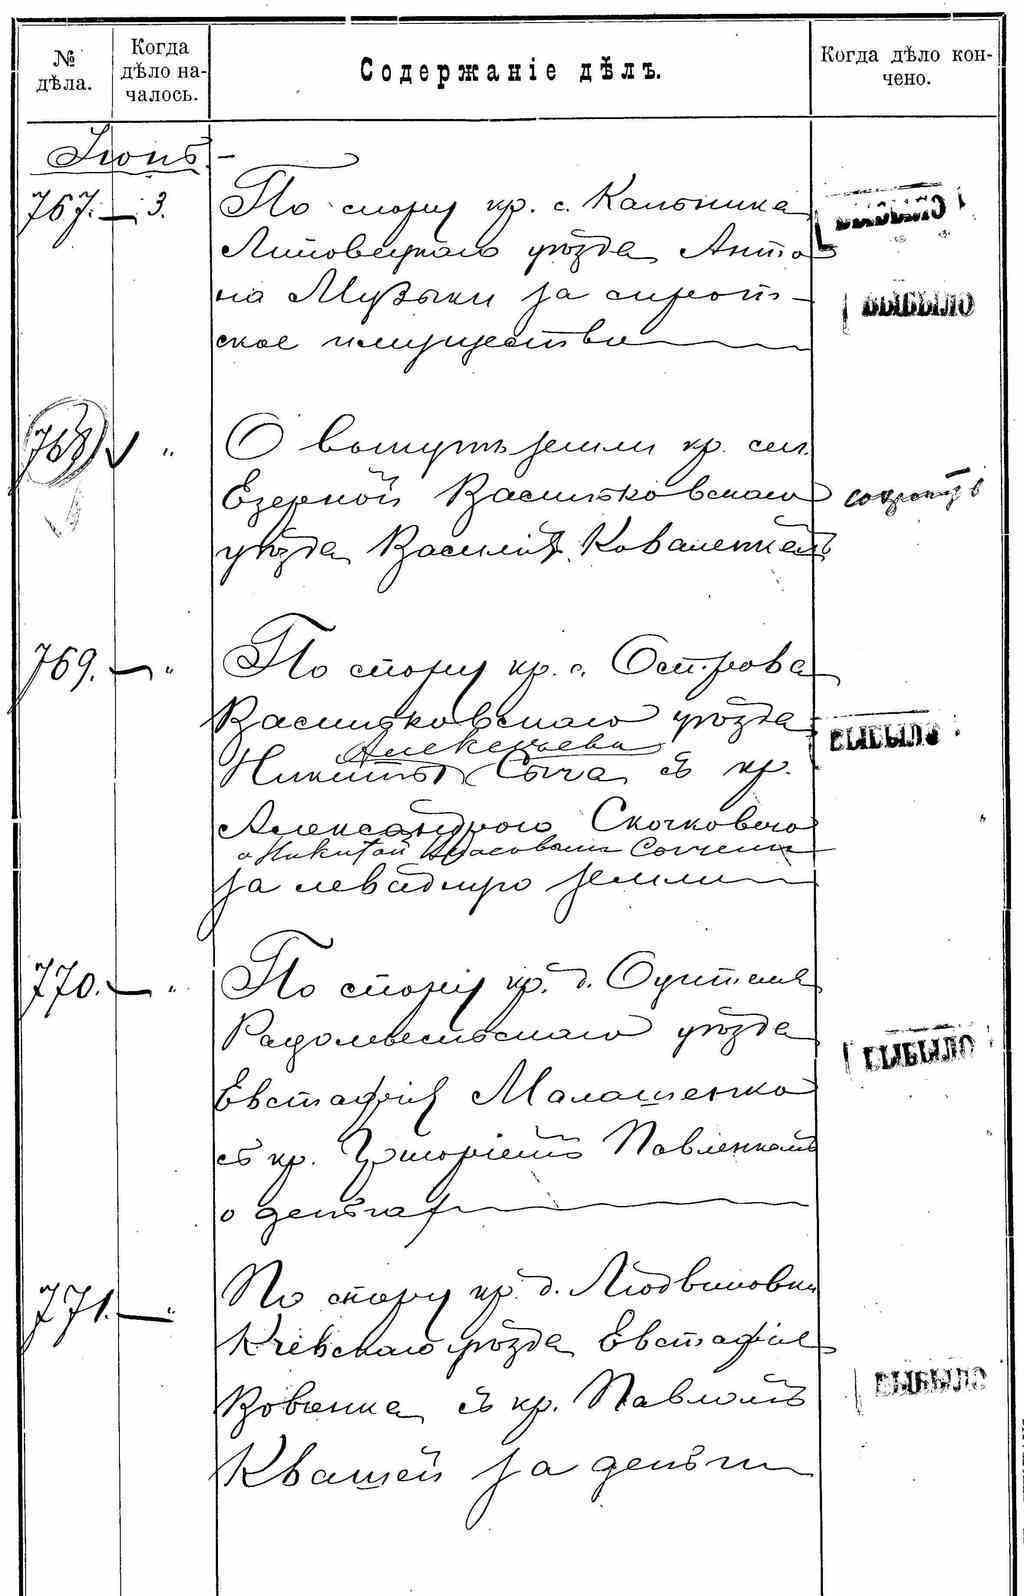 № дѣла.
Когда дѣло началось.
Содержаніе дѣлъ.
Когда дѣло кончено.
Іюнь.
767. — 3.
По спору кр. с. Кальника
Липовецкаго уѣзда Анто
на Музыки за сирот-
ское имущество
ВЫБЫЛО
ВЫБЫЛО
768) "
О выкупѣ земли кр. сел.
Езерной Васильковскаго
уѣзда Василія Коваленкомъ
769. — "
По спору кр. с. Острова
Васильковскаго уѣзда
Алексѣева
Никиты Сыча съ кр.
Александрою Скочковою
и Никитой Власовымъ Сычемъ
за левадную землю
ВЫБЫЛО
770. — "
По спору кр. д.
Радомысльскаго уѣзда
Евстафія Малашенко
съ кр. Григоріемъ Павленкомъ
о деньгах
ВЫБЫЛО
771. — "
По спору кр. д. Людвиновки
Кіевскаго уѣзда Евстафія
Вовченка съ кр. Павломъ
Квашей за деньги
ВЫБЫЛО